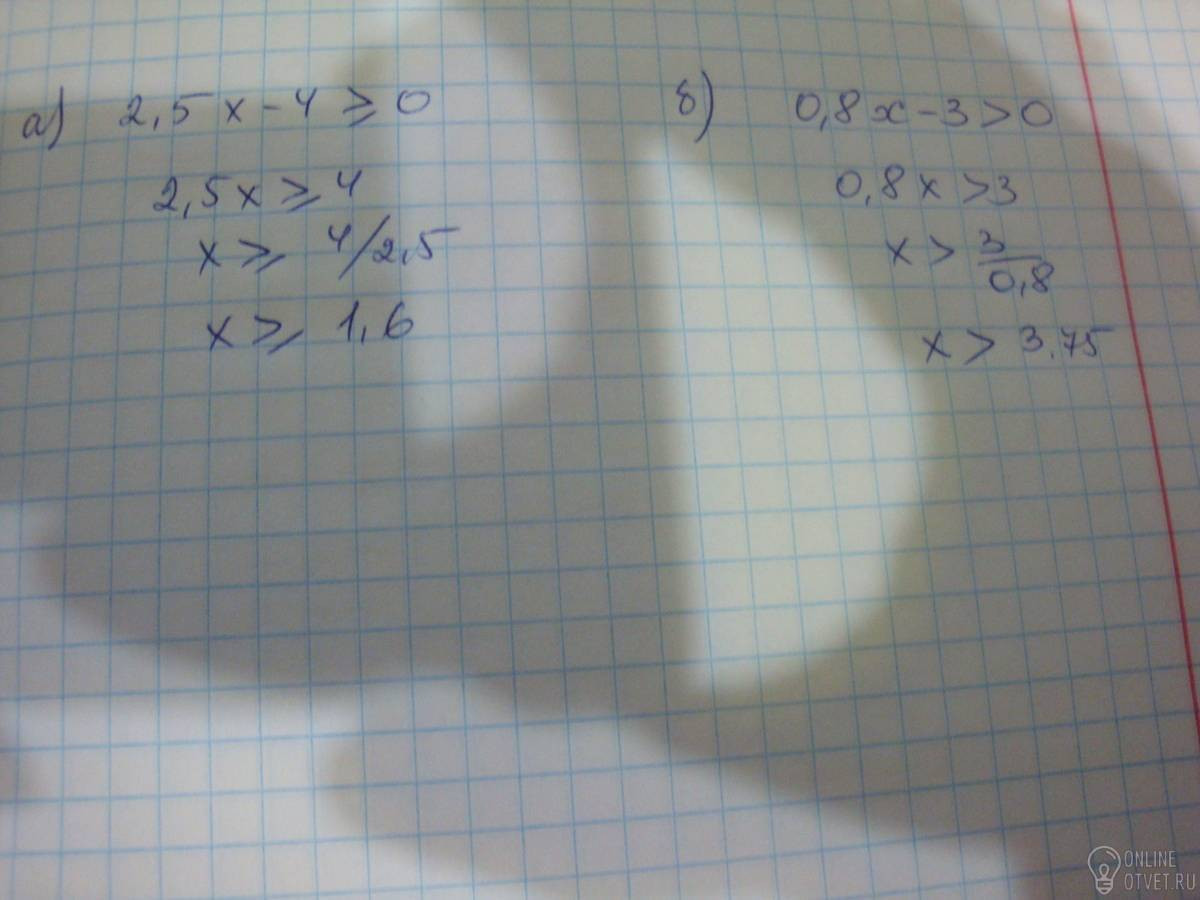 а) 2,5x-4≥0
2,5x≥4
x≥ 4/2,5
x≥ 1,6
б) 0,8x-3>0
0,8x>3
x> 3/0,8
x> 3.75
ONLINE
OTVET.RU